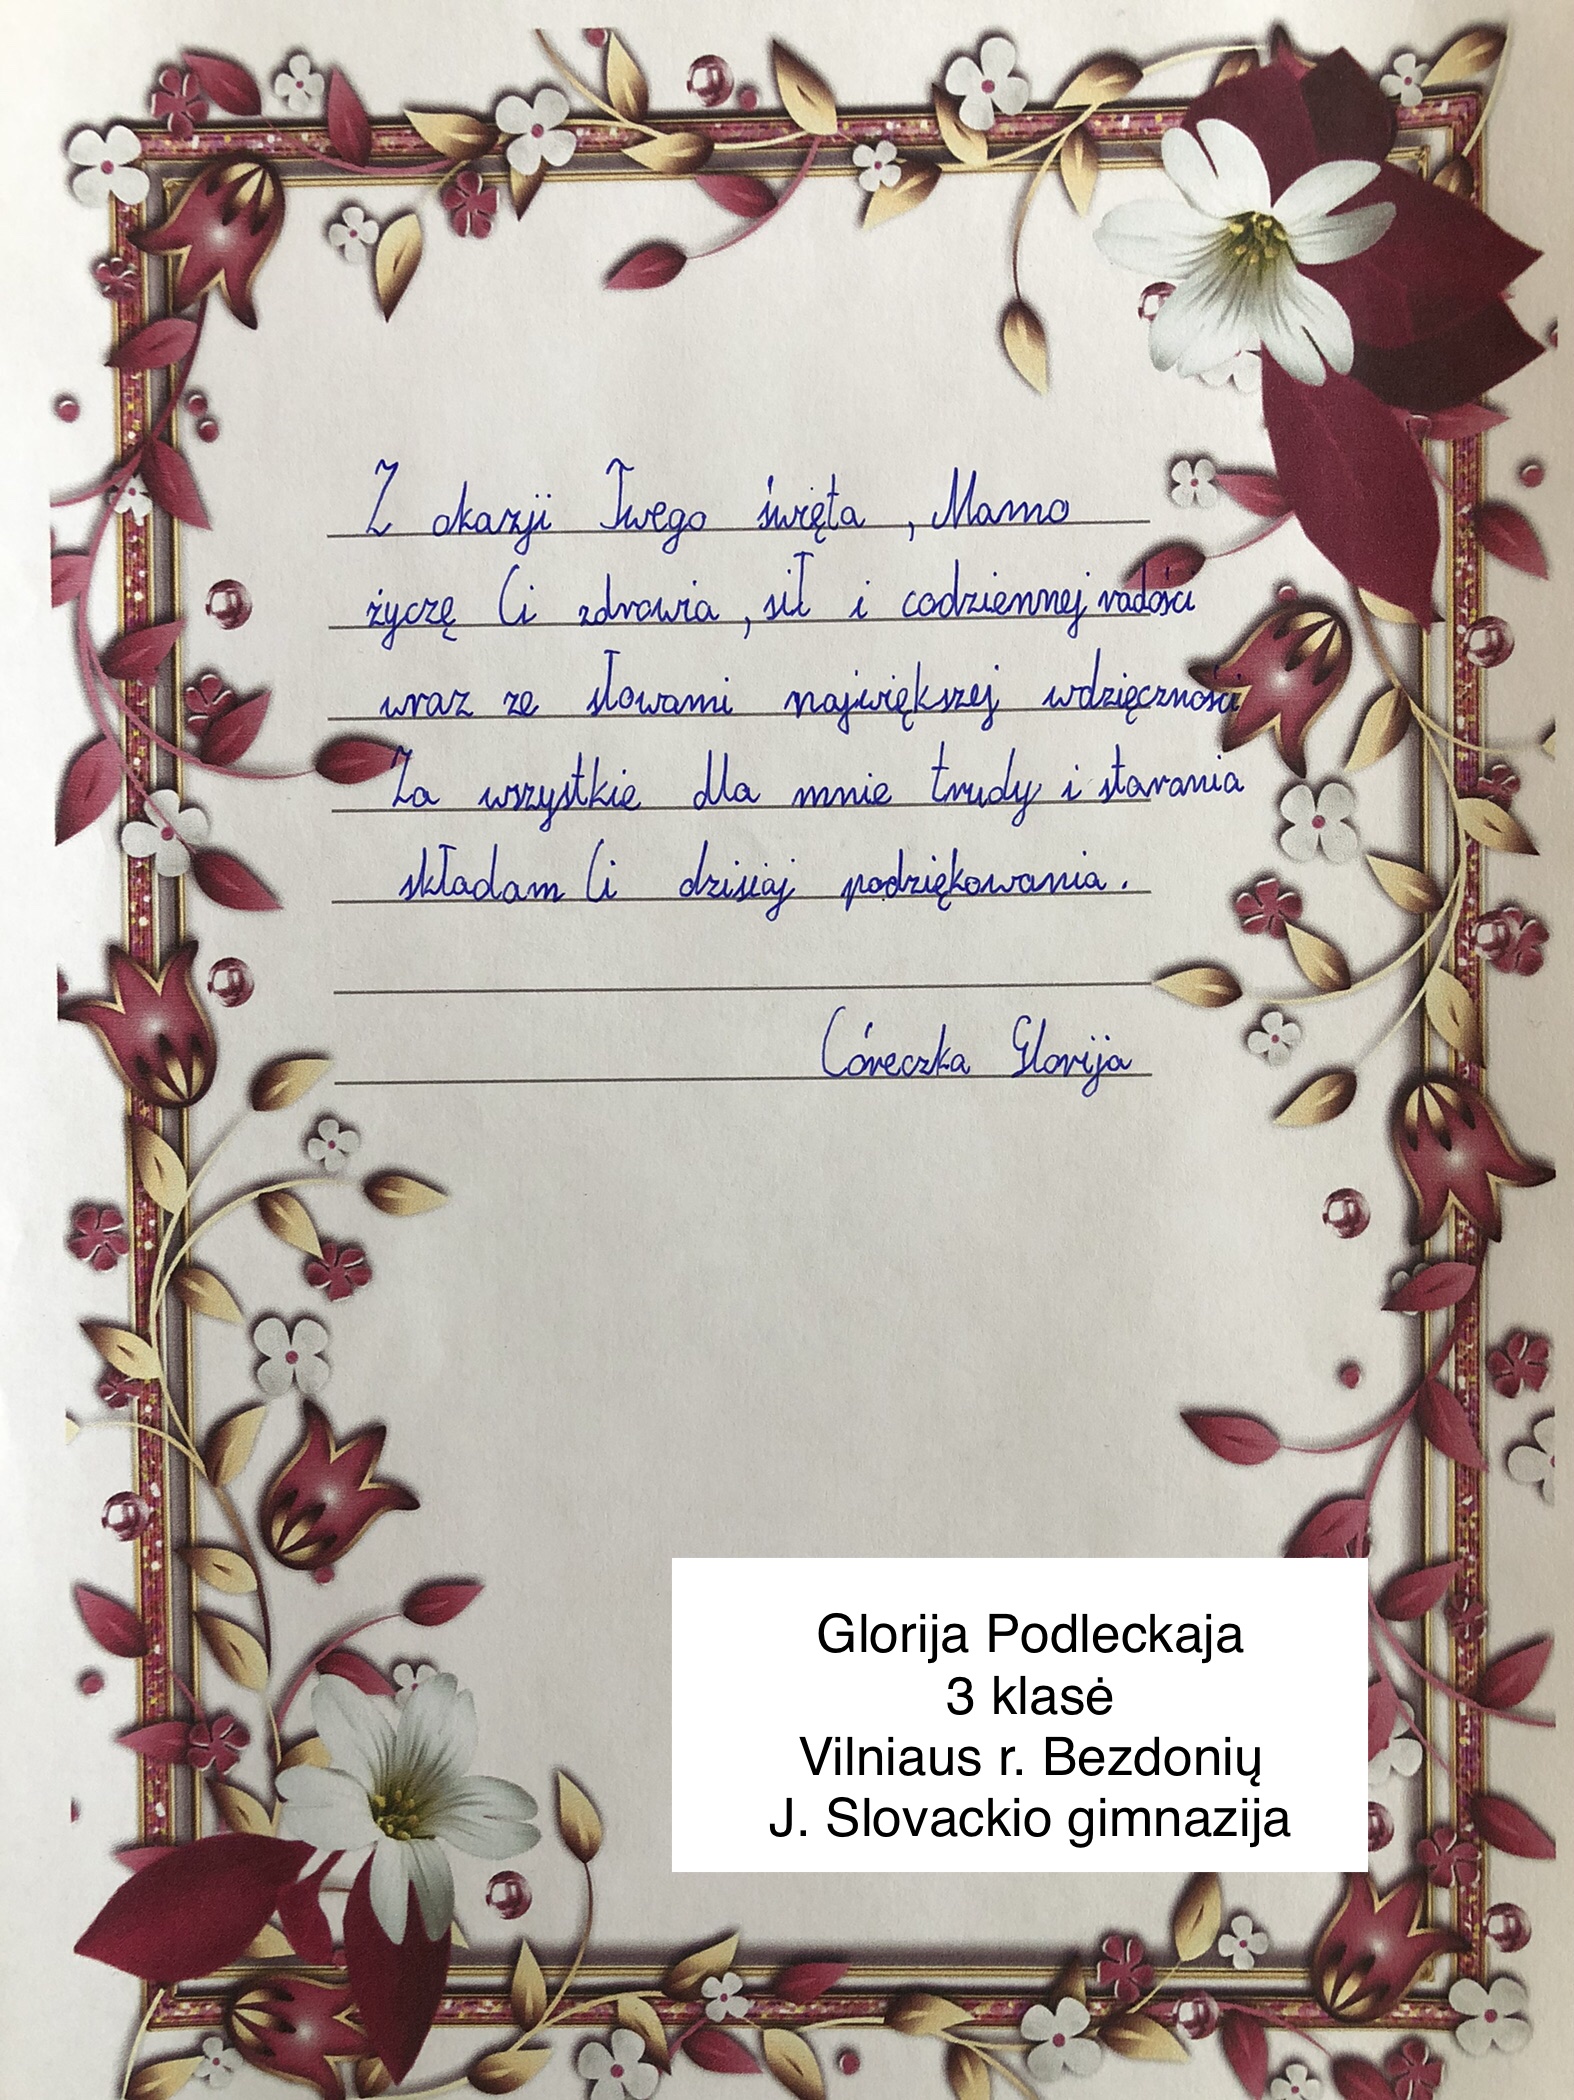 Z okazji Twego święta, Mamo
życzę Ci zdrowia, sił i codziennej radości
wraz ze słowami największej wdzięczności
Za wszystkie dla mnie trudy i starania
składam Ci dzisiaj podziękowania.
Córeczka Glorija
Glorija Podleckaja
3 klasė
Vilniaus r. Bezdonių
J. Slovackio gimnazija